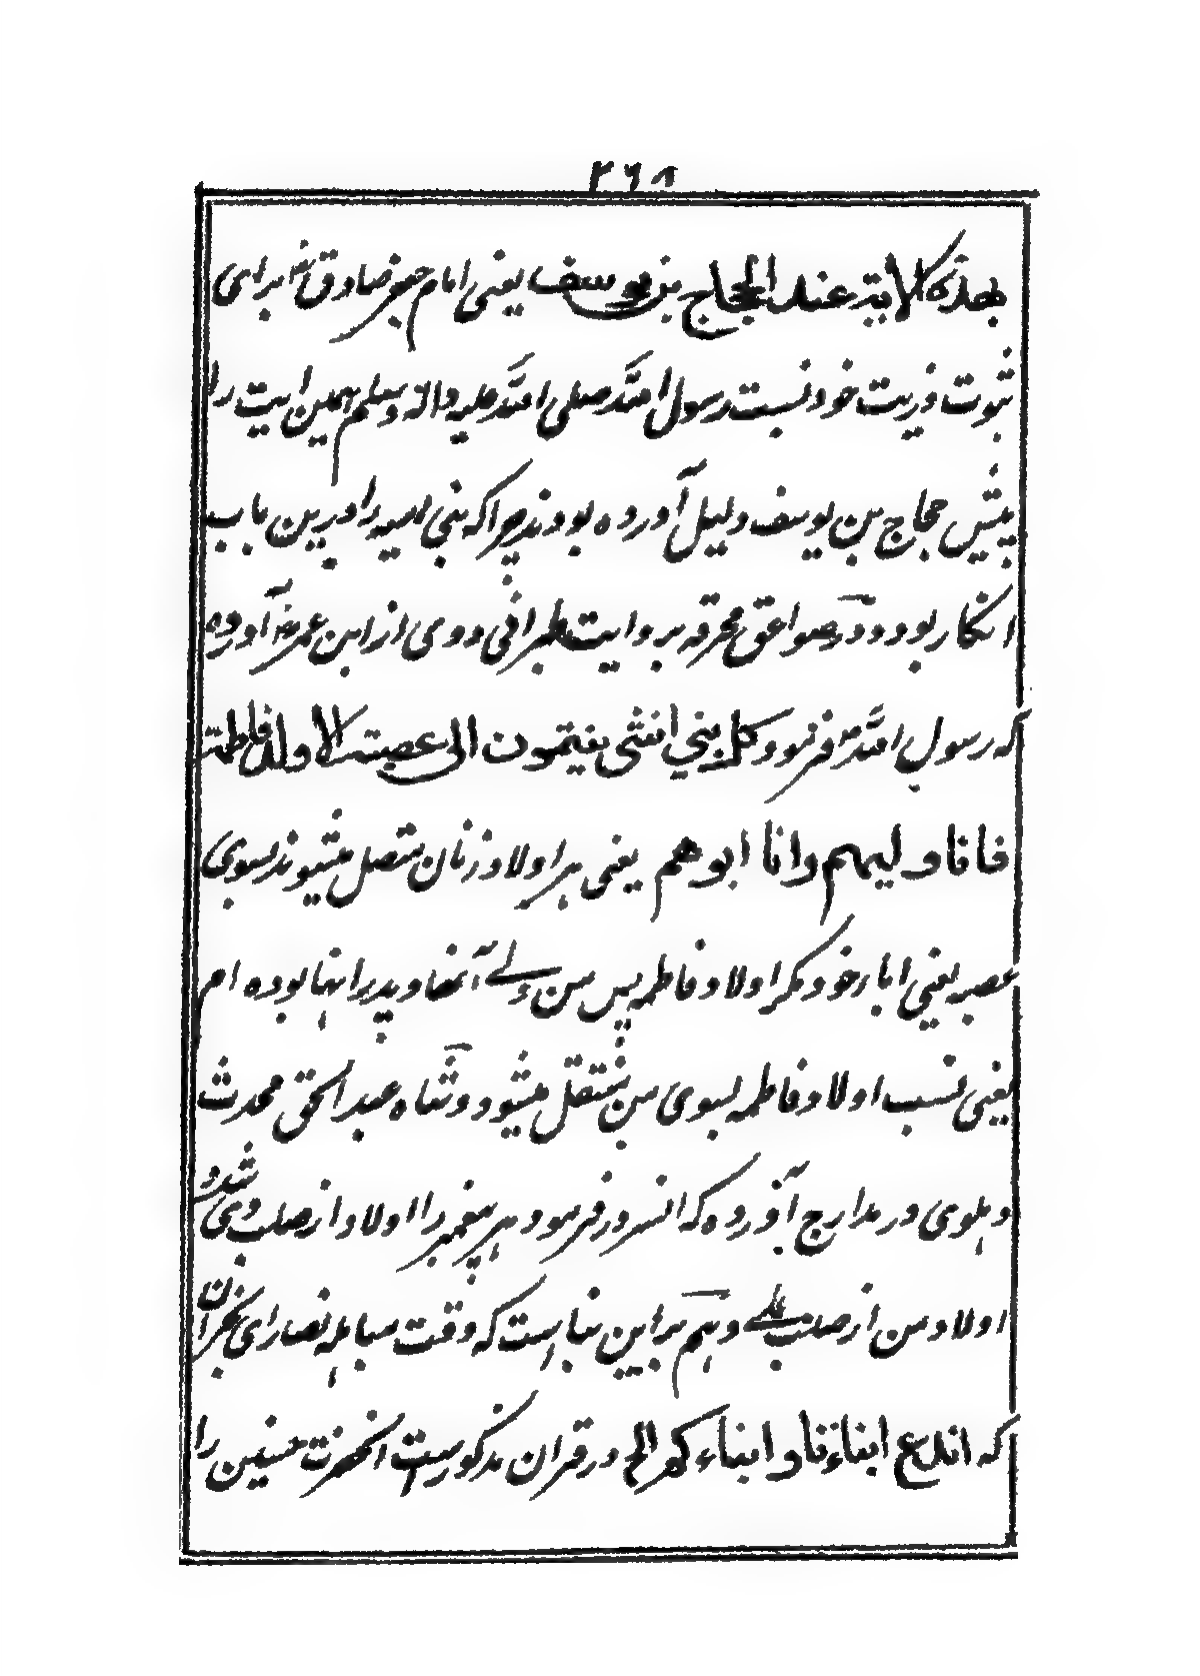 ۲۶۸
بهذه الآیة عند الحجاج بن یوسف یعنی امام جعفر صادق رض برای
ثبوت ذریت خود نسبت رسول الله صلی الله علیه وآله وسلم همین ایت را
پیش حجاج بن یوسف دلیل آورده بودند چرا که بنی امیه را درین باب
انکار بود و در صواعق محرقه بروایت طبرانی و وی از ابن عمر رض آورده
که رسول الله ص فرمود کل بنی انثی ینتمون الی عصبته الا ولد فاطمة
فانا ولیهم وانا ابوهم یعنی هر اولاد زنان متصل میشوند بسوی
عصبه یعنی اباء خود مگر اولاد فاطمه پس من ولی آنها و پدر انها بوده ام
یعنی نسب اولاد فاطمه بسوی من منتقل میشود و شاه عبد الحق محدث
دهلوی در مدارج آورده که انسرور فرمود هر پیغمبر را اولاد از صلب وی شد و
اولاد من از صلب علی و هم براین بناست که وقت مباهله نصارای نجران
که اندع ابناءنا و ابناءکم الخ در قران مذکورست انحضرت حسنین را